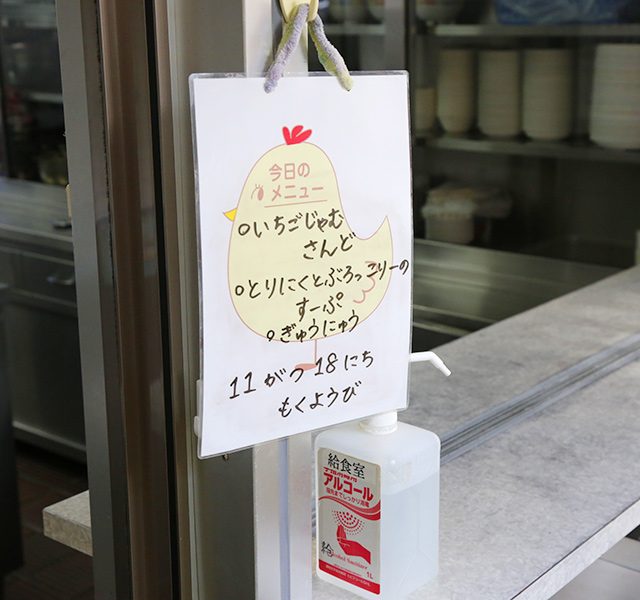 今日の
メニュー
○いちごじゃむ
さんど
○とりにくとぶろっこりーの
すーぷ
○ぎゅうにゅう
11がつ18にち
もくようび
給食室
アルコール
給
1L